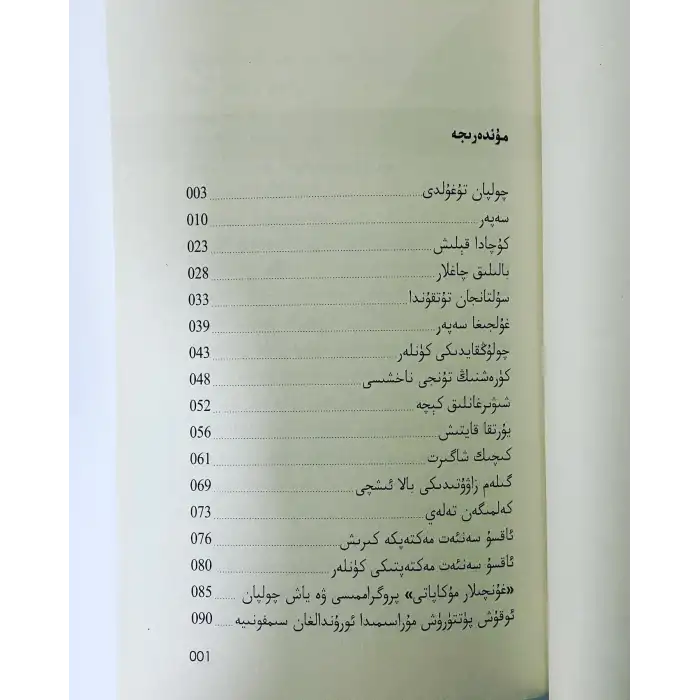 مۇندەرىجە
چولپان تۇغۇلدى 003
سەپەر 010
كۇچادا قېلىش 023
بالىلىق چاغلار 028
سۇلتانجان تۇتقۇندا 033
غۇلجىغا سەپەر 039
چولۇڭقايدىكى كۈنلەر 043
كۈرەشنىڭ تۇنجى ناخشىسى 048
شىۋىرغانلىق كېچە 052
يۇرتقا قايتىش 056
كىچىك شاگىرت 061
گىلەم زاۋۇتىدىكى بالا ئىشچى 069
كەلمىگەن تەلەي 073
ئاقسۇ سەنئەت مەكتەپكە كىرىش 076
ئاقسۇ سەنئەت مەكتەپتىكى كۈنلەر 080
«غۇنچىلار مۇكاپاتى» پروگراممىسى ۋە ياش چولپان 085
ئوقۇش پۈتتۈرۈش مۇراسىمىدا ئورۇندالغان سىمفونىيە 090
001